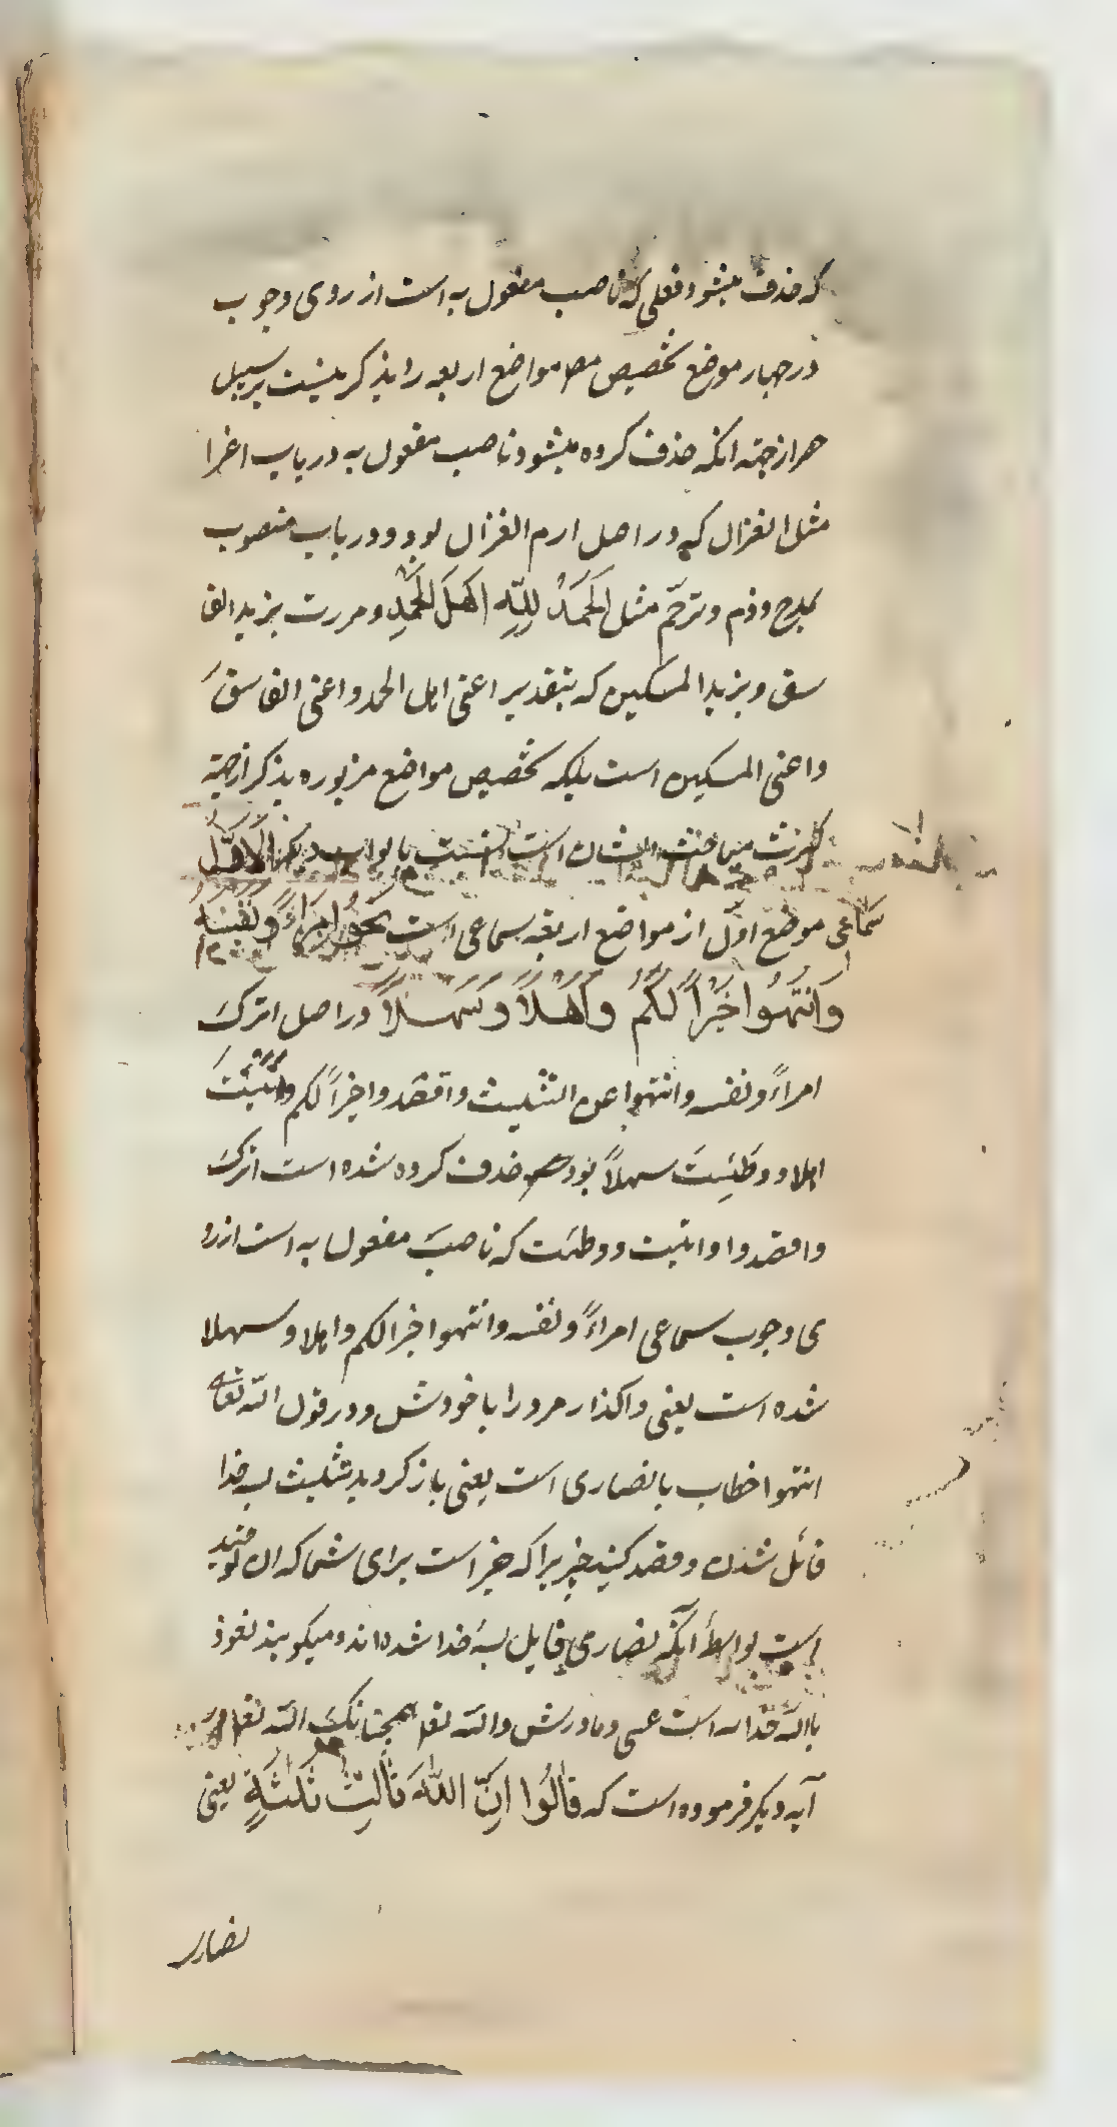 که حذف میشود فعلی که ناصب مفعول به است از روی وجوب
در چهار موضع تخصیص مواضع اربعه را بذکر نیست بر سبیل
حصر از جهته انکه حذف کرده میشود ناصب مفعول به در باب اغرا
مثل الغزال که در اصل ارم الغزال بود و در باب منصوب
بمدح و ذم و ترحّم مثل اَلحَمدُ لِلّٰهِ اَهلَ الحَمدِ و مررت بزید الفا
سق و بزید المسکین که بتقدیر اعنی اهل الحمد و اعنی الفاسقَ
و اعنی المسکین است بلکه تخصیص مواضع مزبوره بذکر از جهته
کثرت مباحث ایشان است بنسبت بابواب دیگر اَلاَوَّلُ
سَمَاعِی موضع اوّل از مواضع اربعه سماعی است نحوُ اِمرَاءً وَ نَفسَهُ
وَانتَهُوا خَیرًا لَکُم وَ اَهلاً وَ سَهلاً در اصل اترک
امراءً و نفسه و انتهوا عن التثلیث و اقصدوا خیراً لکم و اَتَیتَ
اهلا و وَطَیتَ سهلاً بود حذف کرده شده است اترک
و اقصدوا و اتیت و وطئت که ناصبَ مفعول به است از رو
ی وجوب سماعی امراءً و نفسه و انتهوا خیرا لکم و اهلا و سهلا
شده است یعنی واکذار مرد را با خودش و در قول اللّه تعالی
انتهوا خطاب با نصاری است یعنی باز کردید تثلیث بسه خدا
قائل شدن و قصد کنید چیزیرا که خیر است برای شما که ان توحید
است بواسطۀ آنکه نصاری قایل بسه خدا شده‌اند و میکویند نعوذ
باللّه خدا سه است عیسی و مادرش و اللّه تعالی همچنانکه اللّه تعالی در
آیه دیکر فرموده است که قالُوا اِنَّ اللّٰهَ ثالِثُ ثَلٰثَةٍ یعنی
نصاری